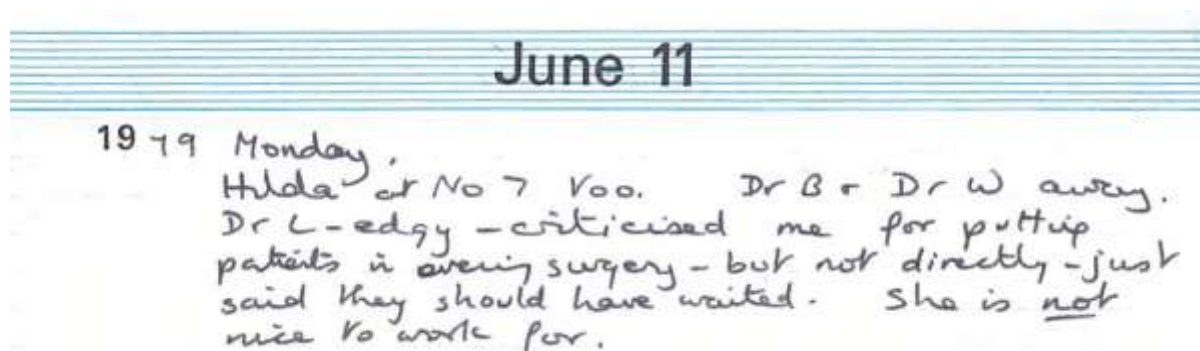 June 11
1979 Monday.
Hilda at No 7 too. Dr B + Dr W away.
Dr L - edgy - criticised me for putting
patients in evening surgery - but not directly - just
said they should have waited. She is not
nice to work for.